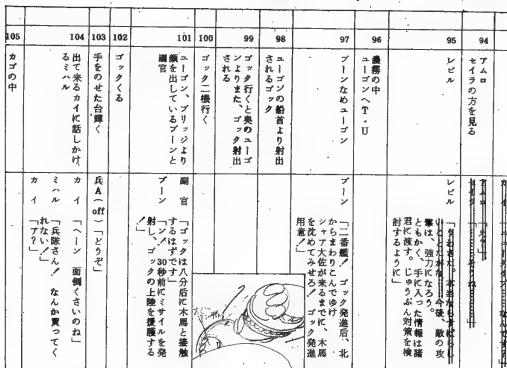 94
アムロ
セイラの方を見る
95
レビル
レビル
撃は、強力になろう。
ともかく、手に入った情報は諸
君に渡す。じゅうぶん対策を検
討するように」
96
濃霧の中
ユーゴンへT・U
97
ブーンなめユーゴン
ブーン
「二番艦！ ゴック発進後、北
からまわりこんでゆけ
シャア大佐が来るまでに、木馬
を沈めてみせろ！ ゴック発進
用意！」
98
ユーゴンの船首より射出
されるゴック
99
ゴック行くと奥のユーゴ
ンよりまた、ゴック射出
される
100
ゴック二機行く
101
ユーゴン、ブリッジより
顔を出しているブーンと
副官
副官
「ゴックは八分后に木馬と接触
するはずです」
ブーン
「ン！ 30秒前にミサイルを発
射し、ゴックの上陸を援護する
！」
102
ゴックくる
103
手をのせた台輝く
兵A(off
「どうぞ」
104
出て来るカイに話しかけ
るミハル
カイ
「ヘーン 面倒くさいのね」
ミハル
「兵隊さん！ なんか買ってく
れない！」
カイ
「ア？」
105
カゴの中